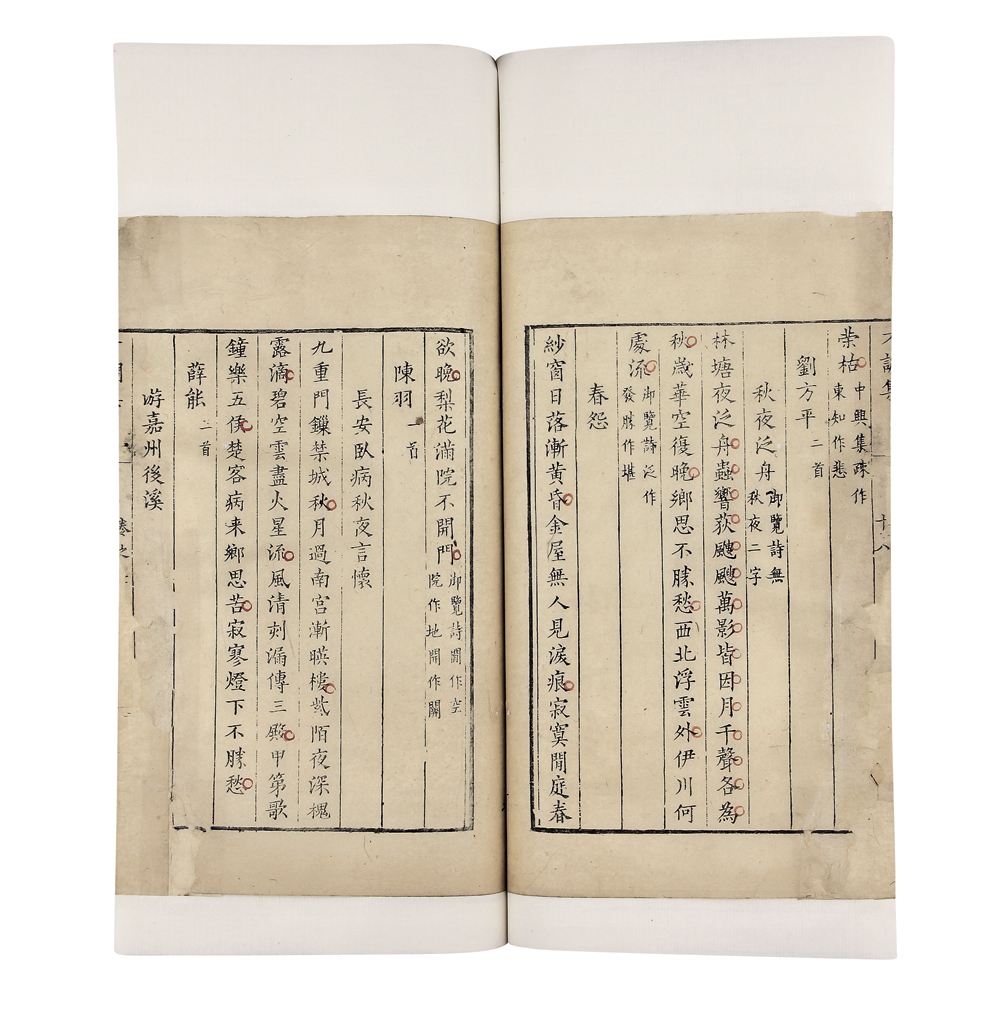 榮枯中興集疎作
東知作悲
劉方平二首
秋夜泛舟御覽詩無
秋夜二字
林塘夜泛舟蟲響荻颼颼萬影皆因月千聲各為
秋歲華空復晚鄉思不勝愁西北浮雲外伊川何
處流御覽詩泛作
發勝作堪
春怨
紗窗日落漸黄昏金屋無人見淚痕寂寞閒庭春
欲晚梨花滿院不開門御覽詩閒作空
院作地開作關
陳羽一首
長安臥病秋夜言懷
九重門鏁禁城秋月過南宮漸暎樓紫陌夜深槐
露滴碧空雲盡火星流風清刻漏傳三殿甲第歌
鐘樂五侯楚客病来鄉思苦寂寥燈下不勝愁
薛能二首
游嘉州後溪
卷之